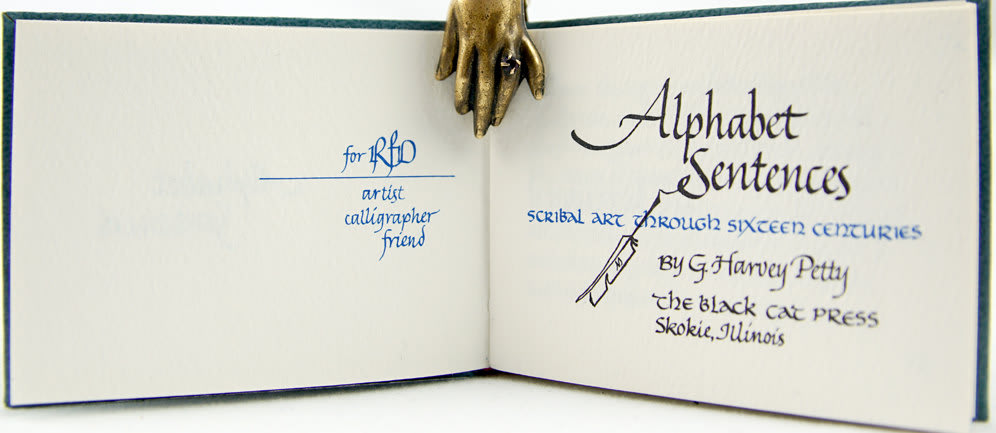 for RfD
artist
calligrapher
friend
Alphabet
Sentences
scribal art through sixteen centuries
By G. Harvey Petty
The Black Cat Press
Skokie, Illinois